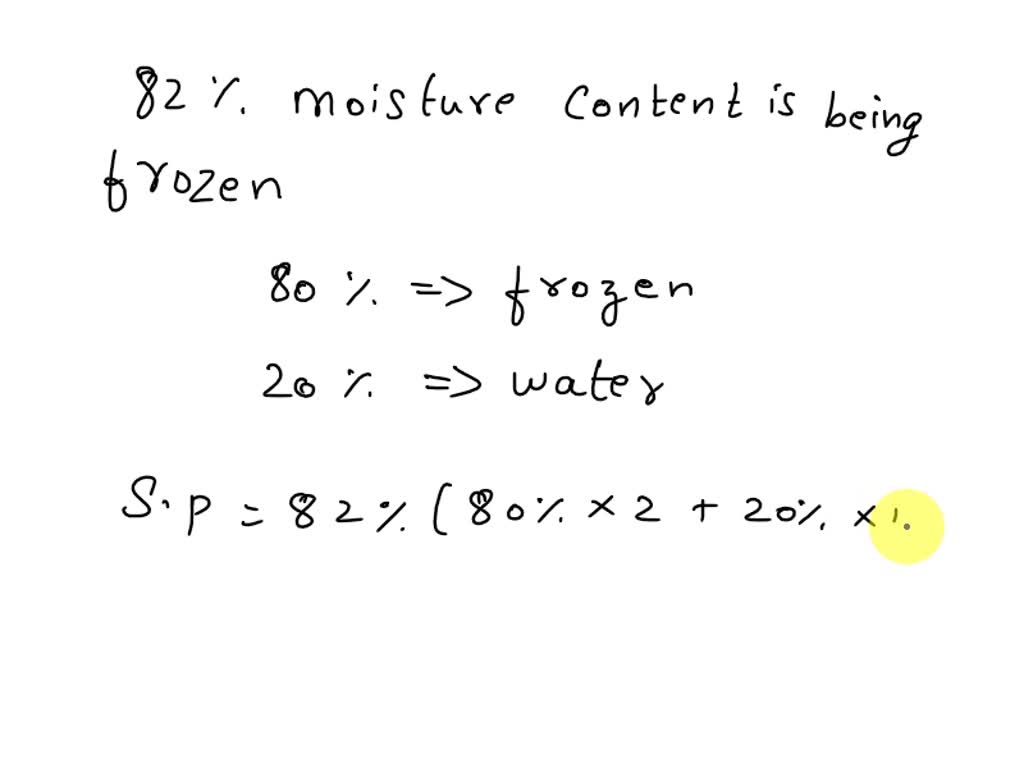 82 %. moisture content is being
frozen
80 %. => frozen
20 %. => water
S.p = 82 % ( 80 % × 2 + 20 %. ×